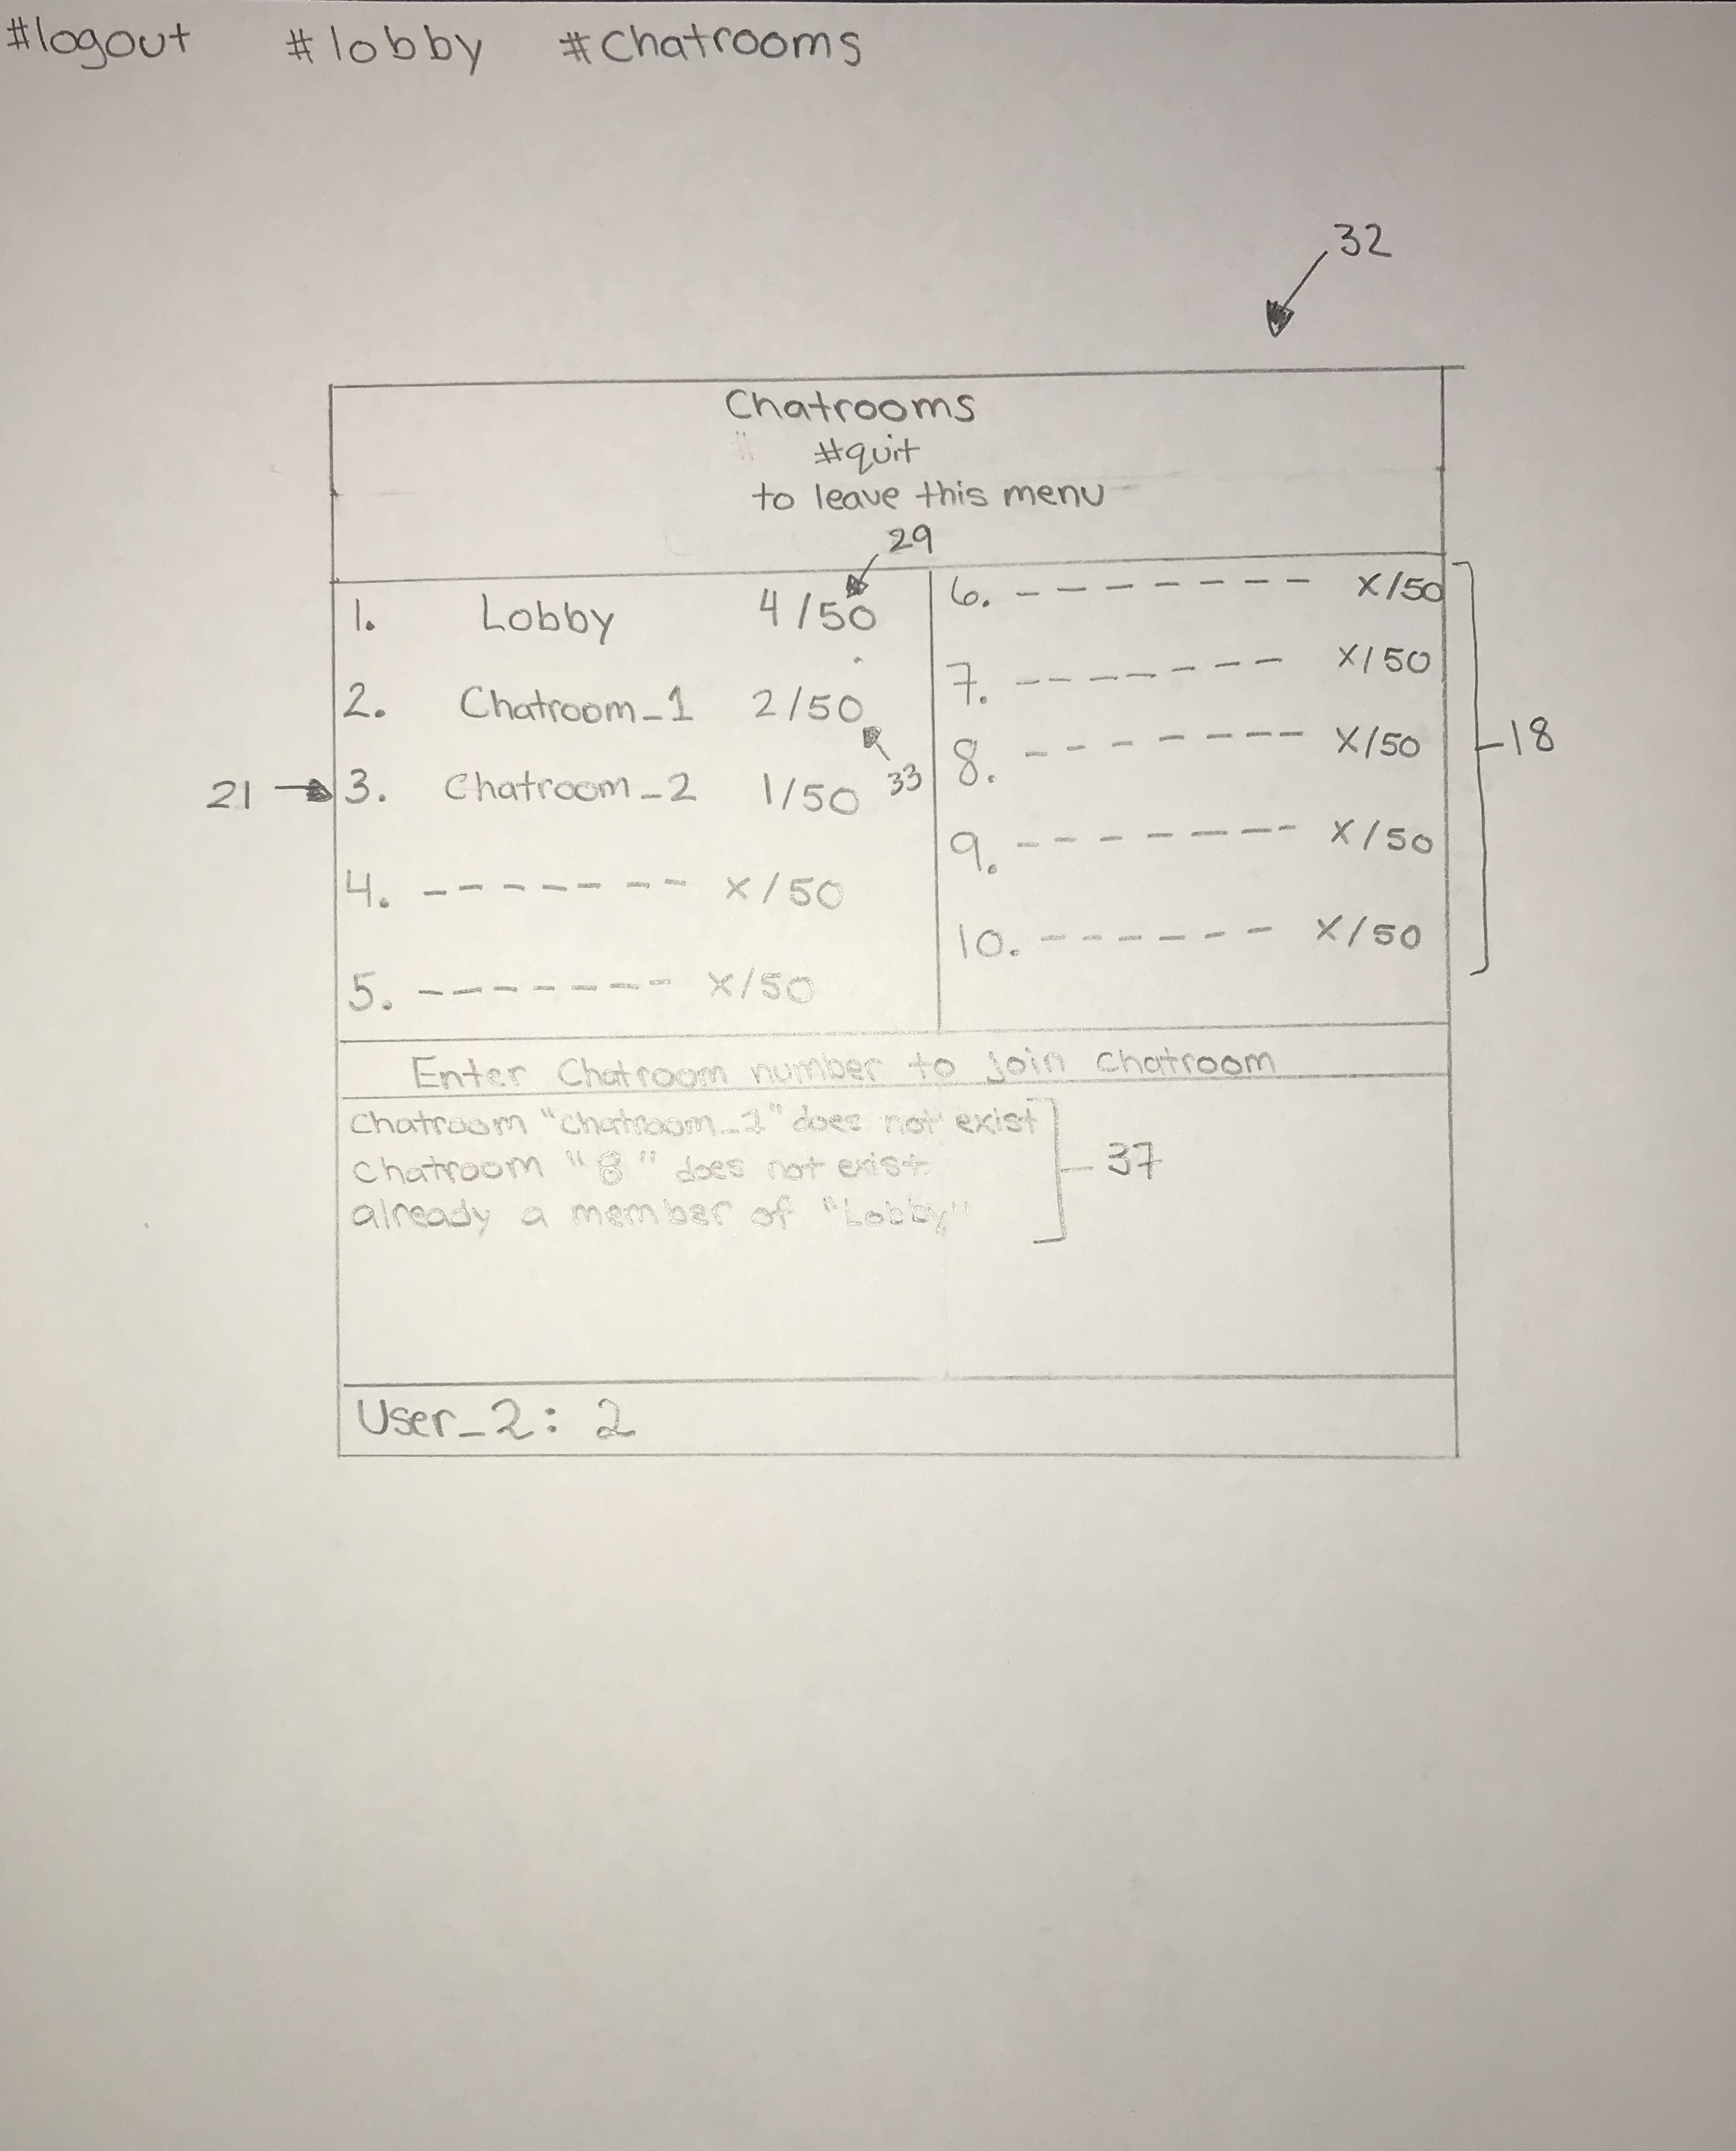 #logout #lobby #Chatrooms
32
Chatrooms
#quit
to leave this menu
29
1. Lobby 4/50
2. Chatroom_1 2/50
33
21
3. Chatroom_2 1/50
4. ------- x/50
5. ------- x/50
6. -------- x/50
7. ------- x/50
8. ------- x/50
9. ------- x/50
10. ------ x/50
18
Enter Chatroom number to join chatroom
Chatroom "Chatroom_2" does not exist
Chatroom "8" does not exist
already a member of "Lobby"
37
User_2: 2